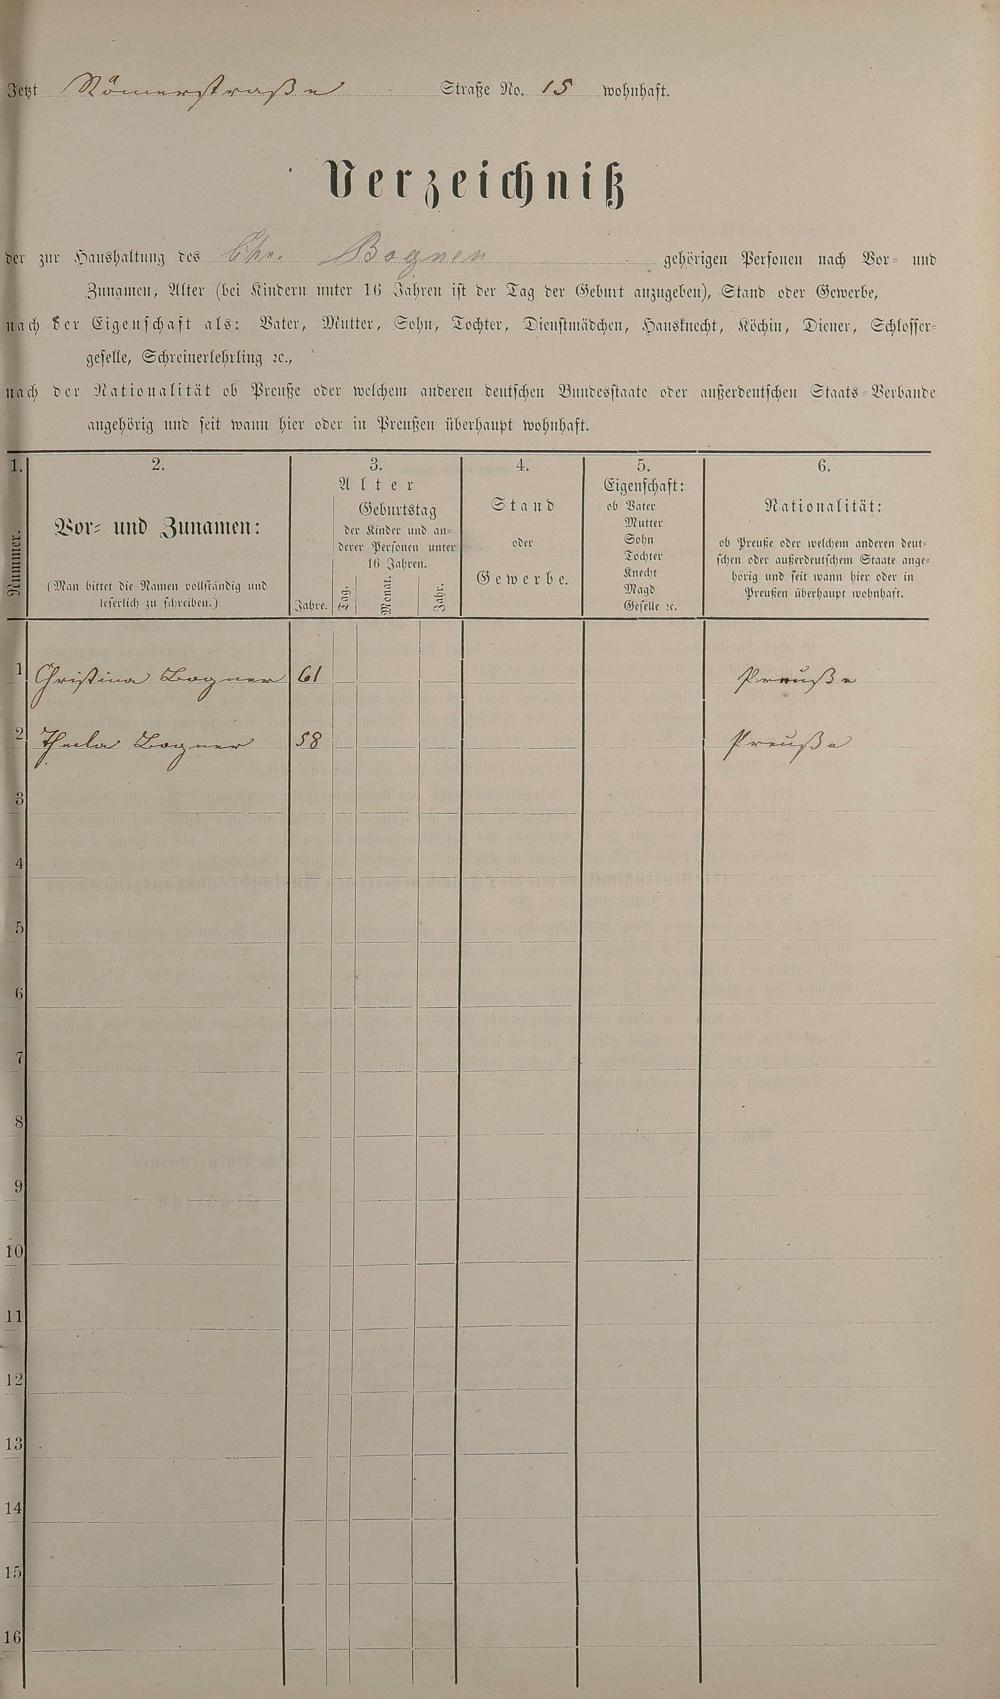 Jetzt Römerstraße Straße No. 15 wohnhaft.
Verzeichniß
der zur Haushaltung des Chr. Bogner gehörigen Personen nach Vor- und
Zunamen, Alter (bei Kindern unter 16 Jahren ist der Tag der Geburt anzugeben), Stand oder Gewerbe,
nach der Eigenschaft als: Vater, Mutter, Sohn, Tochter, Dienstmädchen, Hausknecht, Köchin, Diener, Schlosser-
geselle, Schreinerlehrling ꝛc.,
nach der Nationalität ob Preuße oder welchem anderen deutschen Bundesstaate oder außerdeutschen Staats-Verbande
angehörig und seit wann hier oder in Preußen überhaupt wohnhaft.
1.
Nummer.
2.
Vor- und Zunamen:
(Man bittet die Namen vollständig und
leserlich zu schreiben.)
3.
Alter
Jahre.
Geburtstag
der Kinder und an-
derer Personen unter
16 Jahren.
Tag.
Monat.
Jahr.
4.
Stand
oder
Gewerbe.
5.
Eigenschaft:
ob Vater
Mutter
Sohn
Tochter
Knecht
Magd
Geselle ꝛc.
6.
Nationalität:
ob Preuße oder welchem anderen deut-
schen oder außerdeutschem Staate ange-
hörig und seit wann hier oder in
Preußen überhaupt wohnhaft.
1 Christina Bogner 61 Preuße
2 Thecla Bogner 58 Preuße
3
4
5
6
7
8
9
10
11
12
13
14
15
16